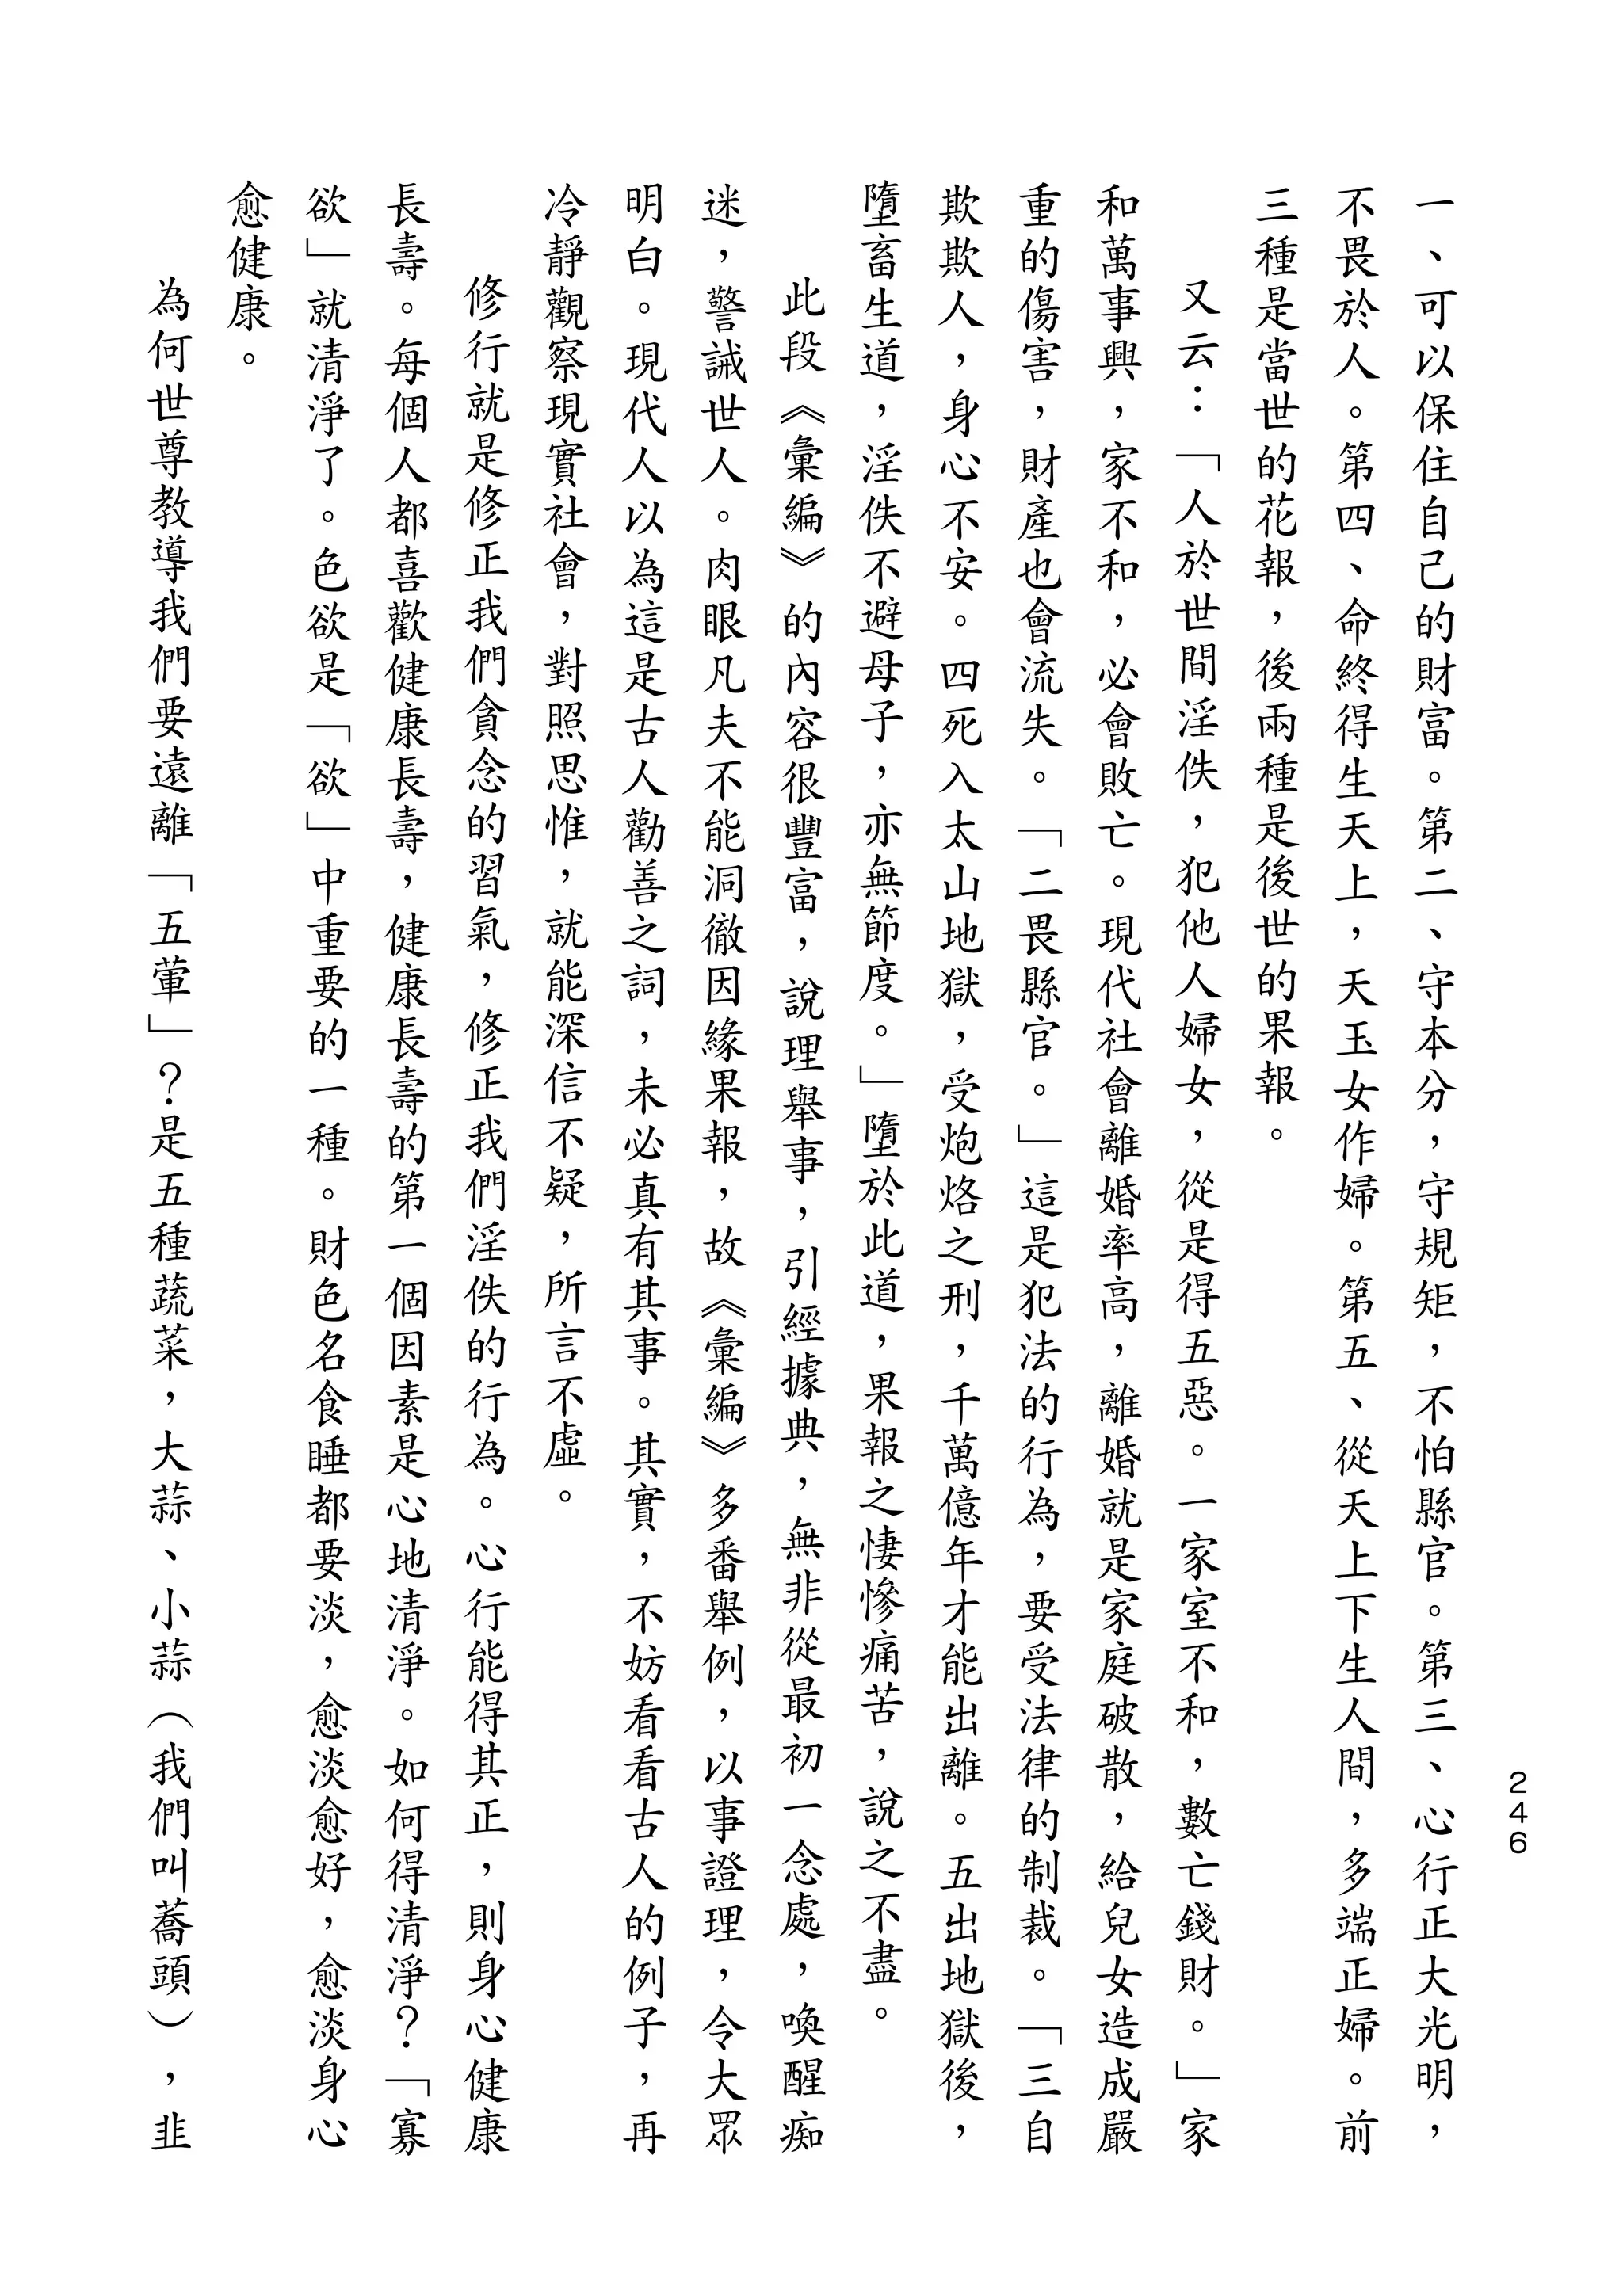 一、可以保住自己的財富。第二、守本分，守規矩，不怕縣官。第三、心行正大光明，
不畏於人。第四、命終得生天上，天玉女作婦。第五、從天上下生人間，多端正婦。前
三種是當世的花報，後兩種是後世的果報。
又云：「人於世間淫佚，犯他人婦女，從是得五惡。一家室不和，數亡錢財。」家
和萬事興，家不和，必會敗亡。現代社會離婚率高，離婚就是家庭破散，給兒女造成嚴
重的傷害，財產也會流失。「二畏縣官。」這是犯法的行為，要受法律的制裁。「三自
欺欺人，身心不安。四死入太山地獄，受炮烙之刑，千萬億年才能出離。五出地獄後，
墮畜生道，淫佚不避母子，亦無節度。」墮於此道，果報之悽慘痛苦，說之不盡。
此段《彙編》的內容很豐富，說理舉事，引經據典，無非從最初一念處，喚醒痴
迷，警誡世人。肉眼凡夫不能洞徹因緣果報，故《彙編》多番舉例，以事證理，令大眾
明白。現代人以為這是古人勸善之詞，未必真有其事。其實，不妨看看古人的例子，再
冷靜觀察現實社會，對照思惟，就能深信不疑，所言不虛。
修行就是修正我們貪念的習氣，修正我們淫佚的行為。心行能得其正，則身心健康
長壽。每個人都喜歡健康長壽，健康長壽的第一個因素是心地清淨。如何得清淨？「寡
欲」就清淨了。色欲是「欲」中重要的一種。財色名食睡都要淡，愈淡愈好，愈淡身心
愈健康。
為何世尊教導我們要遠離「五葷」？是五種蔬菜，大蒜、小蒜（我們叫蕎頭），韭
246